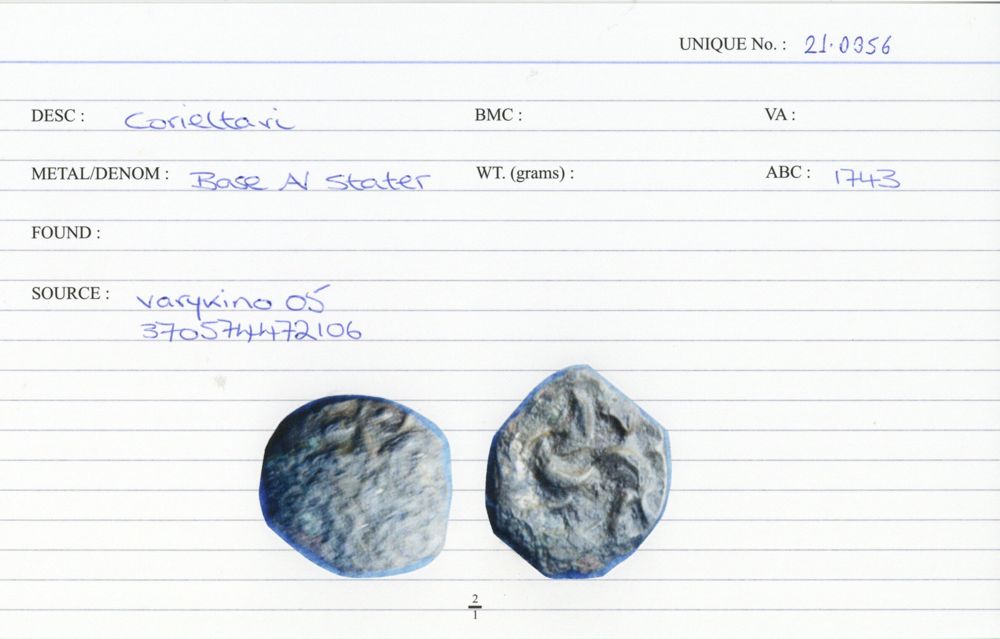 UNIQUE No. : 21.0356
DESC : Corieltavi BMC : VA :
METAL/DENOM : Base AV Stater WT. (grams) : ABC : 1743
FOUND :
SOURCE : varykino 05
370574472106
2
1